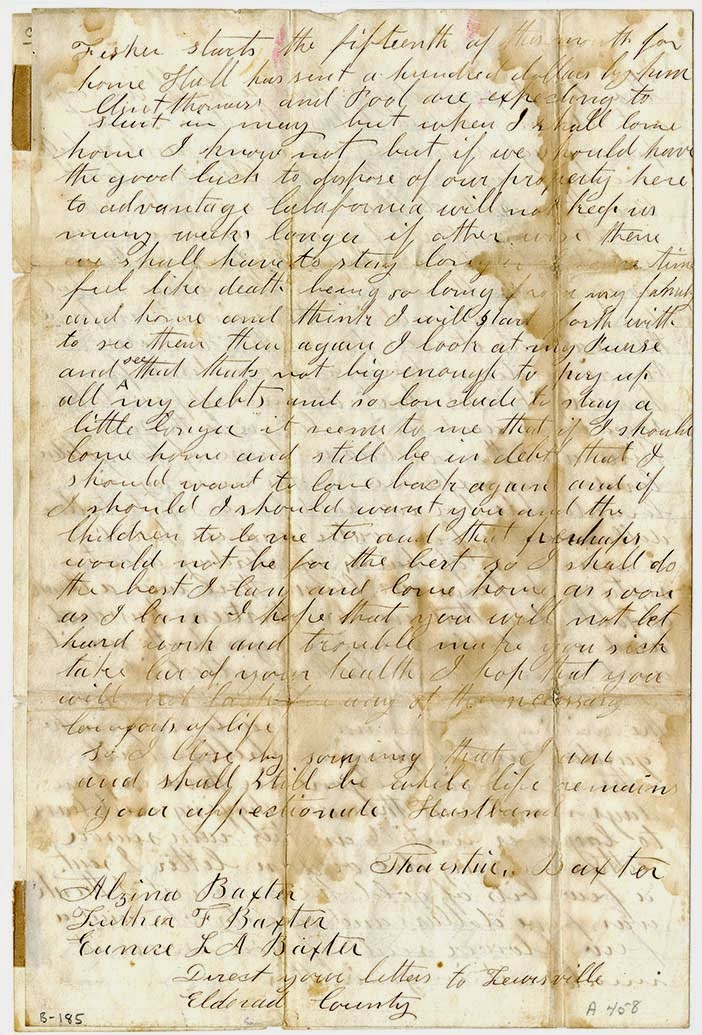 Fisher starts the fifteenth of this month for
home Hall has sent a hundred dollars by him
and Pool are expecting to
start in may but when I shall come
home I know not but if we should have
the good luck to dispose of our property here
to advantage Calafornia will not keep us
many weeks longer if other wise there
we shall have to stay longer time
feel like death being so long from my family
and home and think I will start forth with
to see them then again I look at my Purse
and see that thats not big enough to pay up
all my debts and so conclude to stay a
little longer it seems to me that if I should
come home and still be in debt that I
should want to come back again and if
I should I should want you and the
Children to come to and that perhaps
would not be for the best so I shall do
the best I can and come home as soon
as I can I hope that you will not let
hard work and trouble make you sick
take car of your health I hop that you
will not lack for any of the necessary
comforts of life
So I close by saying that I am
and shall still be while life remains
your affectionate Husband
Thurstin Baxter
Alzina Baxter
Luther F Baxter
Eunice L A Baxter
Direct your letters to Lewisville
Eldorad County
B-185
A 458